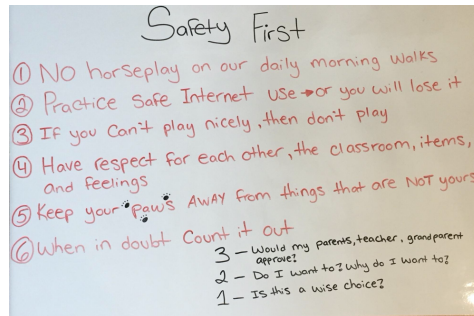 Safety First
① No horseplay on our daily morning walks
② Practice Safe Internet use → or you will lose it
③ If you Can't play nicely, then don't play
④ Have respect for each other, the classroom, items,
and feelings
⑤ Keep your "paws" AWAY from things that are NOT yours
⑥ When in doubt Count it out
3 – Would my parents, teacher, grandparent
approve?
2 – Do I want to? Why do I want to?
1 – Is this a wise choice?